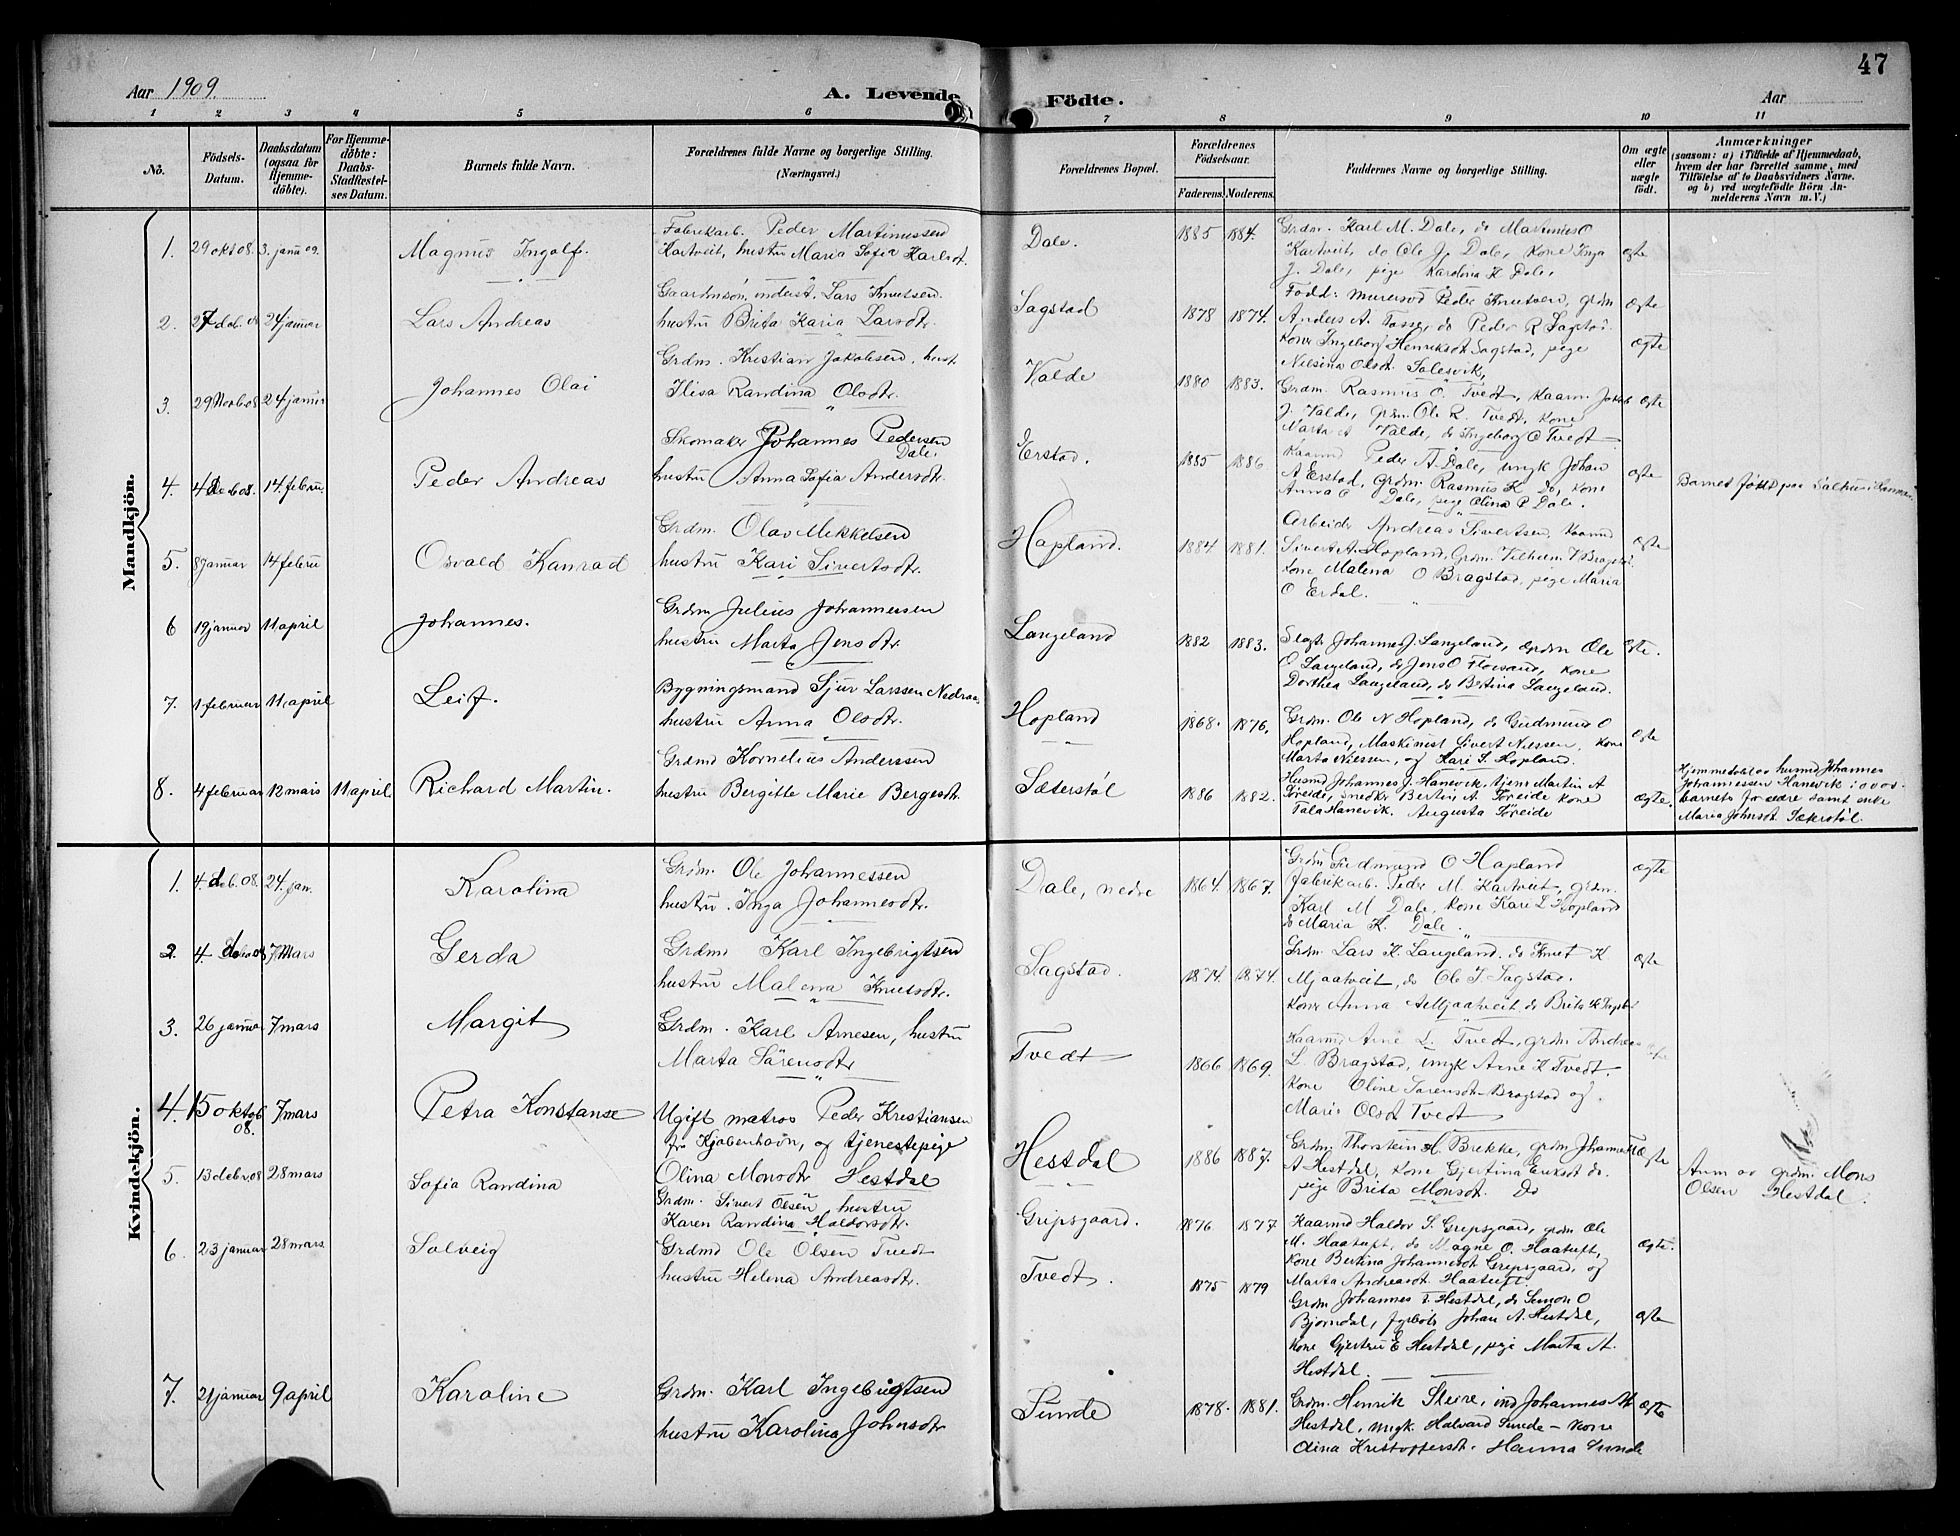 Aar 1909.
A. Levende Födte.
Aar
47
1 2 3 4 5 6 7 8 9 10 11
No.
Födsels-Datum.
Daabsdatum (ogsaa for Hjemme-döbte).
For Hjemme-döbte: Daabs-Stadfæstel-ses Datum.
Barnets fulde Navn.
Forældrenes fulde Navne og borgerlige Stilling.
(Næringsvei.)
Forældrenes Bopæl.
Forældrenes Födselsaar.
Faderens. Moderens.
Faddernes Navne og borgerlige Stilling.
Om ægte eller uægte födt.
Anmærkninger
(saasom: a) i Tilfælde af Hjemmedaab,
hvem der har forrettet samme, med
Tilföielse af to Daabsvidners Navne.
og b) ved uægtefödte Börn An-
melderens Navn m. V.)
Mandkjön.
1. 29 okt 08. 3. janu 09. Magnus Ingolf.
Fabrikarb. Peder Martinussen
Kartveit, hustru Maria Sofia Karlsdt.
Dale. 1885 1884.
Grdm. Karl M. Dale, do Martinus O
Kartveit, do Ole J. Dale, Kone Inga
J. Dale, pige Karolina K Dale,
ægte
2. 27 deb. 08 24 januar Lars Andreas
Gaardmsön, inderst. Lars Knutsen.
hustru Brita Karia Larsdtr.
Sagstad 1878 1874.
Fødd: murersvd Peder Knutsen, grdm
Anders A. Fosse, do Peder R Sagstad.
Kone Ingeborg Henriksdt Sagstad, pige
Nilsina Olsdt. Salesvik,
Ægte
ægte
3. 29 Novb 08 24 januar Johannes Olai
Grdm. Kristian Jakobsen, hust.
Ilisa Randina Olsdtr.
Valde 1880 1883.
Grdm. Rasmus O. Tvedt, Kaarm. Jakob
J. Valde, grdm. Ole R. Tvedt, Kone
Marta A Valde, do Ingeborg O Tvedt
ægte
4. 4 Deb 08. 14. febru. Peder Andreas
Skomaker Johannes Pedersen
Dale,
hustru Anna Sofia Andersdtr.
Erstad. 1885 1886
Kaarmd Peder A. Dale, ungk Johan
A Erstad, Grdm. Rasmus K Do, Kone
Anna O Dale, pige Olina P Dale.
ægte
Barnet födt paa Salhus i Hammer
5. 8 januar 14 febru Osvald Konrad
Grdm. Olav Mikkelsen
hustru Kari Sivertsdtr.
Hopland. 1884 1881.
Arbeidr Andreas Sivertsen, Kaarmd
Sivert A. Hopland, Grdm. Vilhelm V Bragstad.
Kone Malena O Bragstad, pige Maria
O Erdal.
ægte
6 19 januar 11 april Johannes.
Grdm Julius Johannessen
hustru Marta Jensdtr.
Langeland 1882 1883.
Slagtr Johannes J. Langeland, grdm Ole
O Langeland, do Jens O Florsand, Kone
Dorthea Langeland, do Bertina Langeland.
ægte.
7. 1 februar 11. april Leif.
Bygningsmand Sjur Larssen Nedraas,
hustru Anna Olsdtr.
Hopland 1868. 1876.
Grdm. Ole N Hopland, do Gudmund O
Hopland, Maskinist Sivert Nilssen, Kone
Marta Nilssen, og Kari S. Hopland.
ægte
8. 4 februar 12 mars 11 april Richard Martin.
Grdmd Kornelius Anderssen
hustru Bergitte Marie Bergesdtr.
Sæterstöl 1886 1882.
Husmd Johannes J. Hanevik, tjenr Martin A
Töreide, snedkr Bertin A. Töreide Kone
Tala Hanevik. Augusta Töreide
Ægte.
Hjemmedöbt av husmd Johannes
Johannessen Hanevik i overv.
barnets forældre samt enke
Maria Johnsdt. Sæterstöl.
Kvindekjön.
1. 4. deb. 08. 24. jan. Karolina
Grdm. Ole Johannessen
hustru. Inga Johannesdtr.
Dale, nedre 1864. 1867.
Grdm Gudmund O Hopland
fabrikarb. Peder M. Kartveit, grdm.
Karl M Dale, Kone Kari L Hopland
do Maria K. Dale.
ægte
2. 4. deb. 08 7 Mars Gerda
Grdmd Karl Ingebrigtsen
hustru Malena Knutsdtr.
Sagstad. 1874. 1874.
Grdm. Lars K. Langeland, do Knut K
Mjaatveit, do Ole J. Sagstad.
Kone Anna A Mjaatveit, do Brita
ægte
3. 26 januar 7 mars Margit
Grdm. Karl Arnesen, hustru
Marta Sörensdtr
Tvedt 1866 1869.
Kaarmd Arne L. Tvedt, grdm Andreas
L. Bragstad, ungk Arne K Tvedt.
Kone Oline Sörensdt Bragstad og
Maria Olsdt Tvedt
4. 15 oktob 08. 7 mars Petra Konstanse
Ugift matros Peder Kristiansen
fra Kjøbenhavn, og tjenestepige
Olina Monsdtr Hestdal
Hestdal 1886 1887.
Grdm. Thorstein H. Brekke, grdm Johannes
A Hestdal, Kone Gjertina Eriksdt do.
pige Brita Monsdt. Do
Uægte
Anm av grdm. Mons
Olsen Hestdal.
5. 13 debr. 08 28 mars Sofia Randina
Grdm. Sivert Olsen hustru
Karen Randina Haldorsdtr.
Gripsgaard. 1876 1877
Kaarmd Haldor S. Gripsgaard, grdm Ole
M. Haatuft, do Magne O. Haatuft,
Kone Bertina Johannesdt Gripsgaard, og
Marta Andreasdt. Haatuft.
ægte.
6. 23 januar 28 mars. Solveig
Grdmd Ole Olsen Tvedt
hustru Helena Andreasdtr.
Tvedt. 1875 1879
Grdm Johannes T. Hestdal, do Simon O
Bjørndal, fyrbötr Johan A. Hestdal,
Kone Gjertru E Hestdal, pige Marta A.
Hestdal.
ægte
7. 21 januar 9 april Karoline
Grdm. Karl Ingebrigtsen
hustru Karolina Johnsdtr
Sunde 1878. 1881.
Grdm. Henrik Steire, ind Johannes M
Hestdal, ungk. Halvard Sunde - Kone
Olina Kristoffersdt. Hanna Sunde
ægte